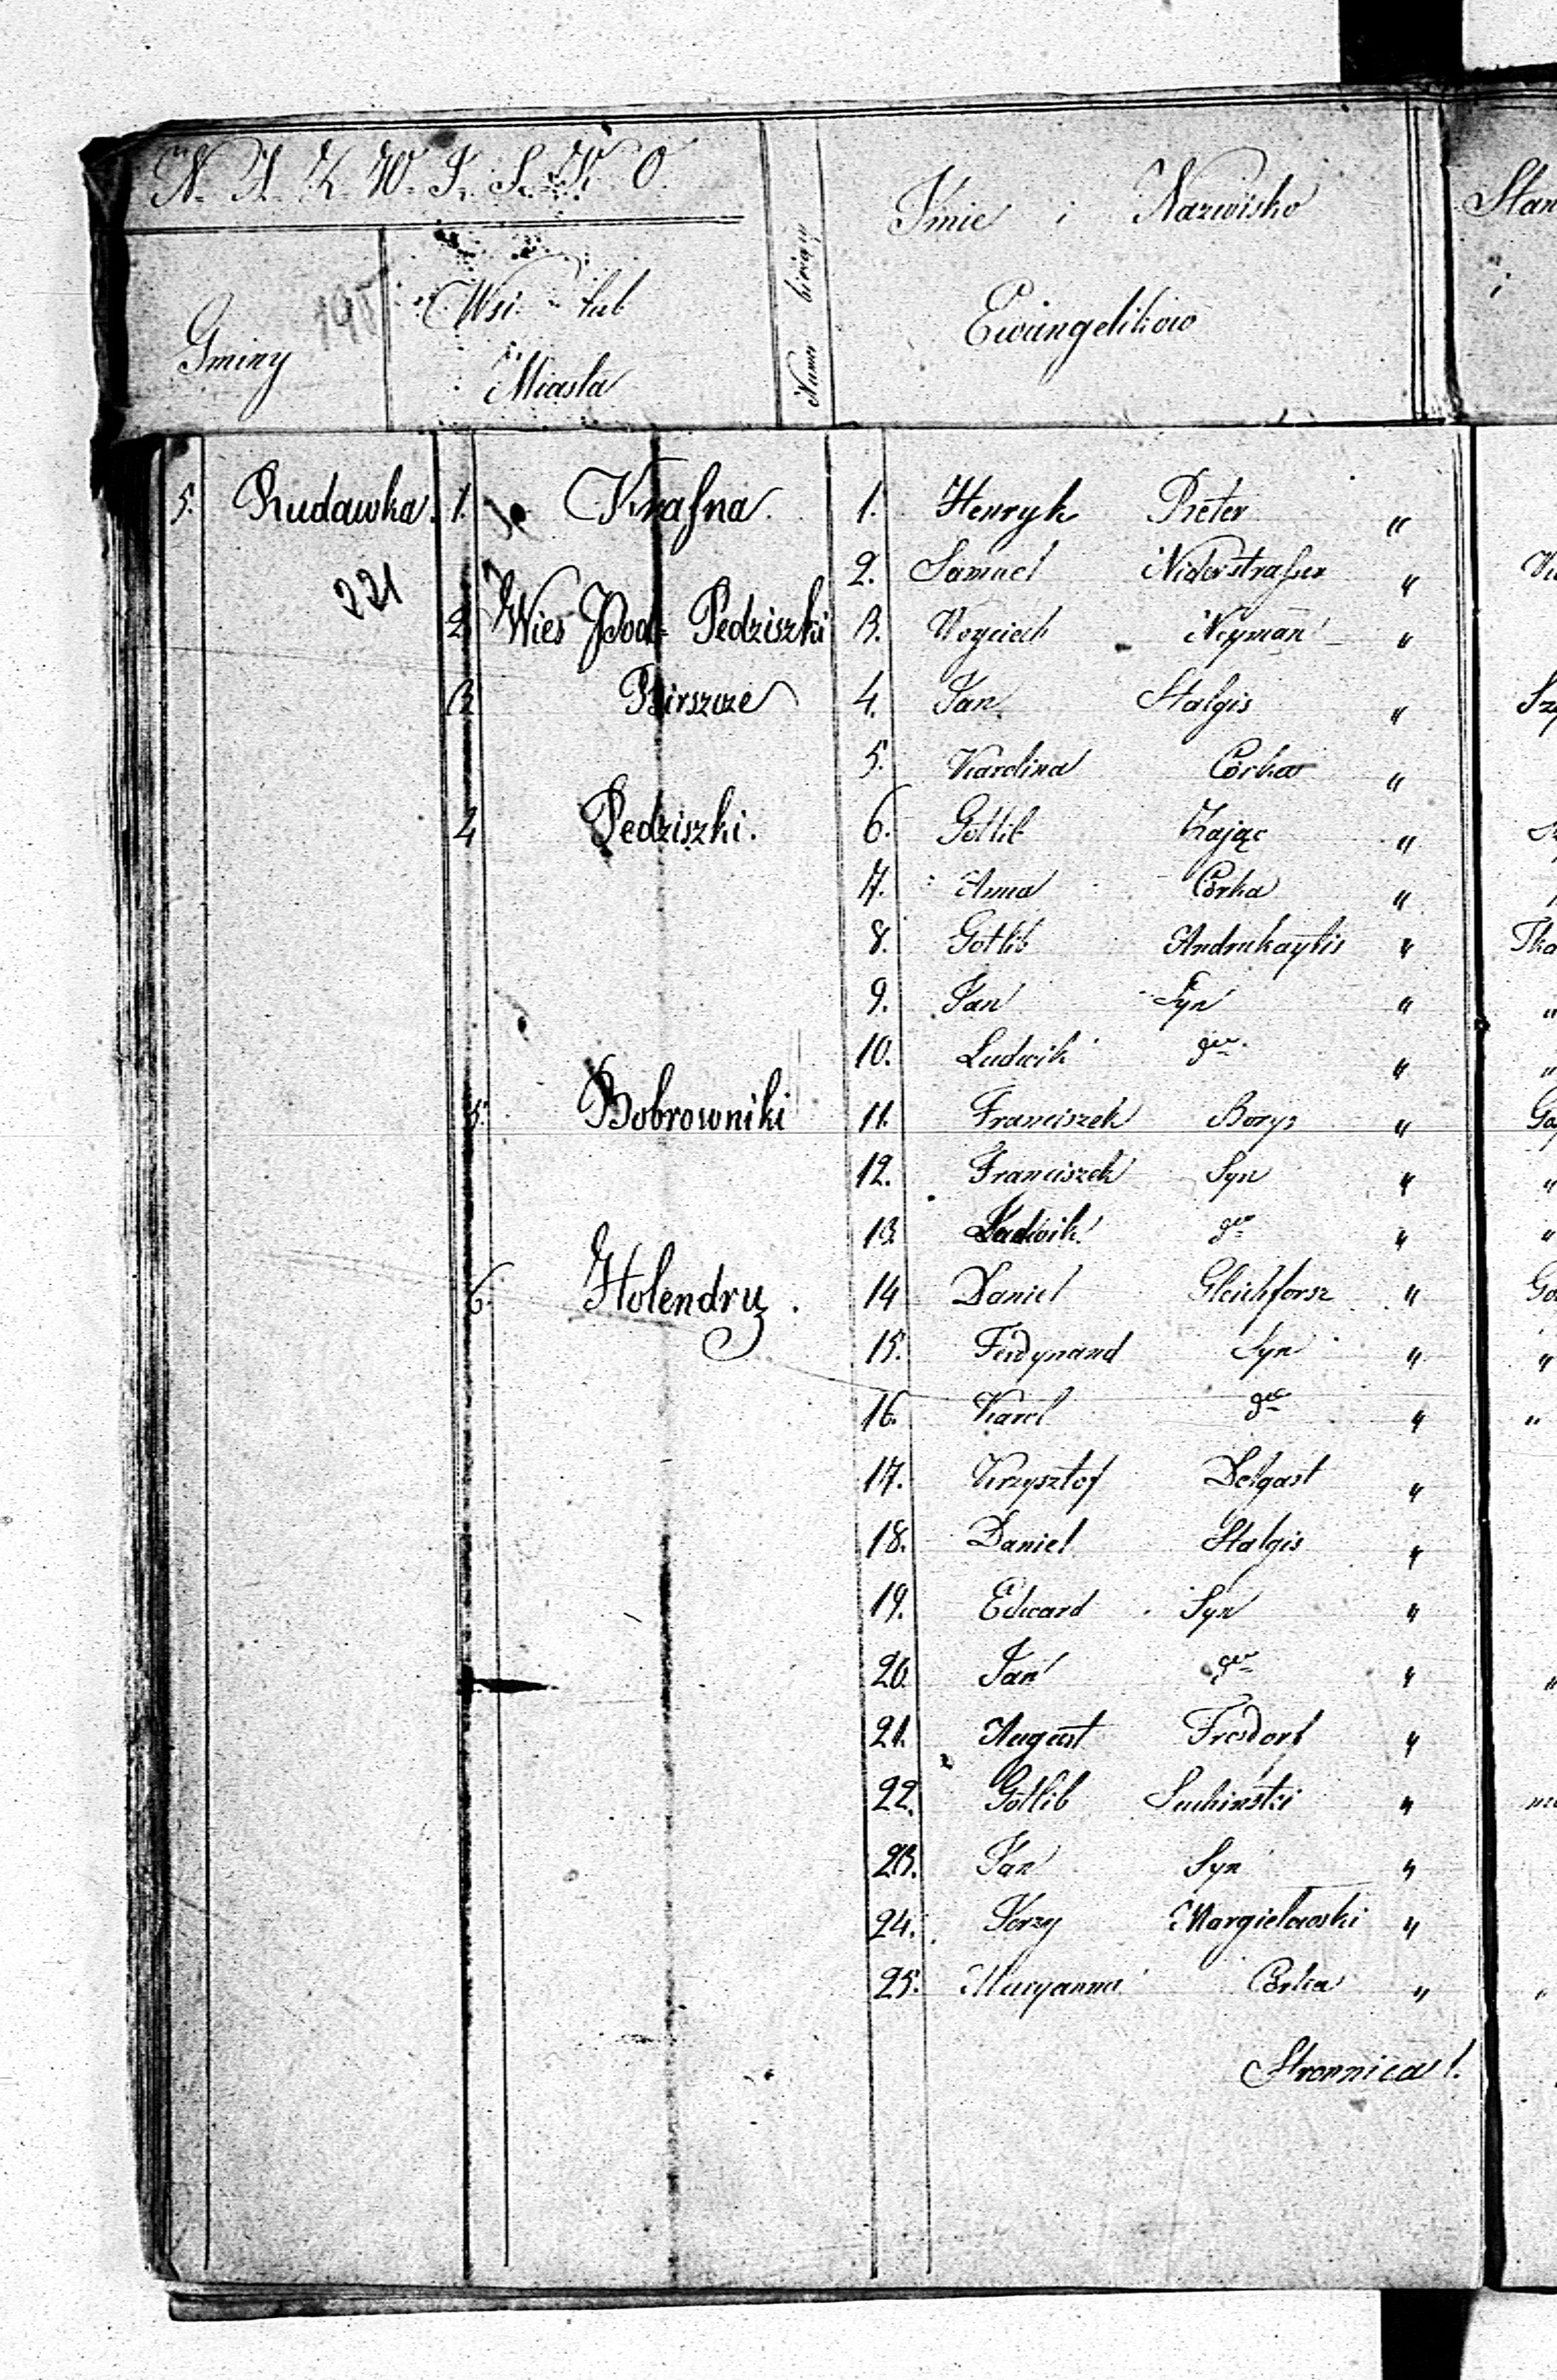 N. A. Z. W. I. S. K. O.
Gminy
Wsi lub
Miasta
Numer bieżący
Imie i Nazwisko
Ewangelikow
Stan
i
5. Rudawka. 1. Krasna. 1. Henryk Reter "
221
2. Samuel Niderstrasser "
2. Wies Pod Pedziszki 3. Woyciech Neyman "
3. Birszcze 4. Jan Stalgis "
5. Karolina Córka "
4 Pedziszki. 6. Gotlib Zając "
7. Anna Córka "
8. Gotlib Andrukaytis "
9. Jan Syn "
10. Ludwik "
5. Bobrowniki 11. Franciszek Borys "
12. Franciszek Syn "
13. Ludwik "
6. Holendry. 14 Daniel Gleichforsz "
15. Ferdynand Syn "
16. Karol "
17. Krzysztof Delgast "
18. Daniel Stalgis "
19. Edward Syn "
20. Jan "
21. August Fresdorf "
22. Gotlib Suchinski "
23. Jan Syn "
24. Jerzy Margielowski "
25. Maryanna Córka "
Stronnica 1.